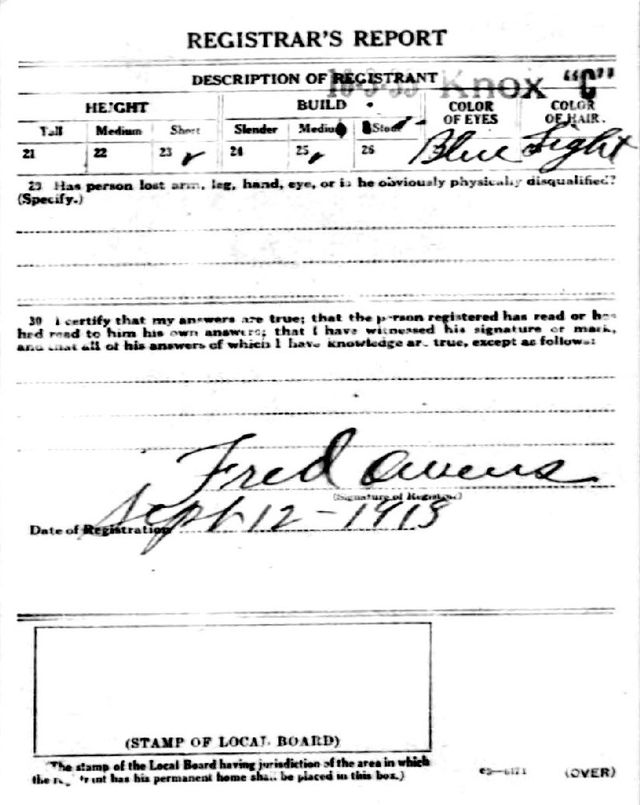 REGISTRAR'S REPORT
DESCRIPTION OF REGISTRANT Knox "C"
HEIGHT BUILD COLOR OF EYES COLOR OF HAIR
Tall Medium Short Slender Medium Stout
21 22 23 ✓ 24 25 ✓ 26 Blue Light
29 Has person lost arm, leg, hand, eye, or is he obviously physically disqualified?
(Specify.)
30 I certify that my answers are true; that the person registered has read or has
had read to him his own answers; that I have witnessed his signature or mark,
and that all of his answers of which I have knowledge are true, except as follows:
Fred Owens
(Signature of Registrar)
Date of Registration Sept 12-1918
(STAMP OF LOCAL BOARD)
(The stamp of the Local Board having jurisdiction of the area in which
the registrant has his permanent home shall be placed in this box.)
(OVER)